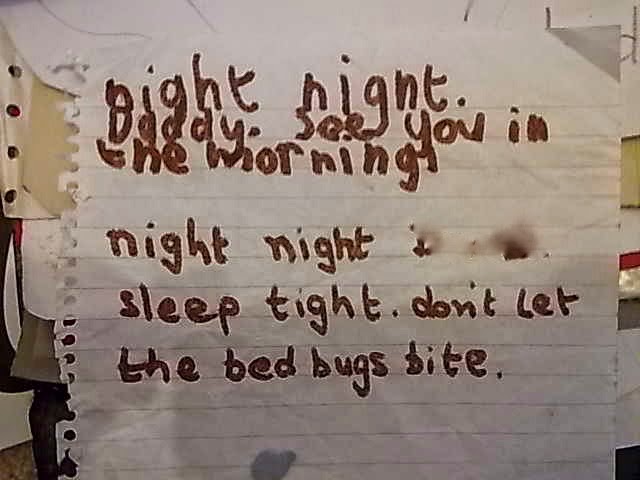 night night.
Daddy. see you in
the morning!
night night
sleep tight. don't let
the bed bugs bite.